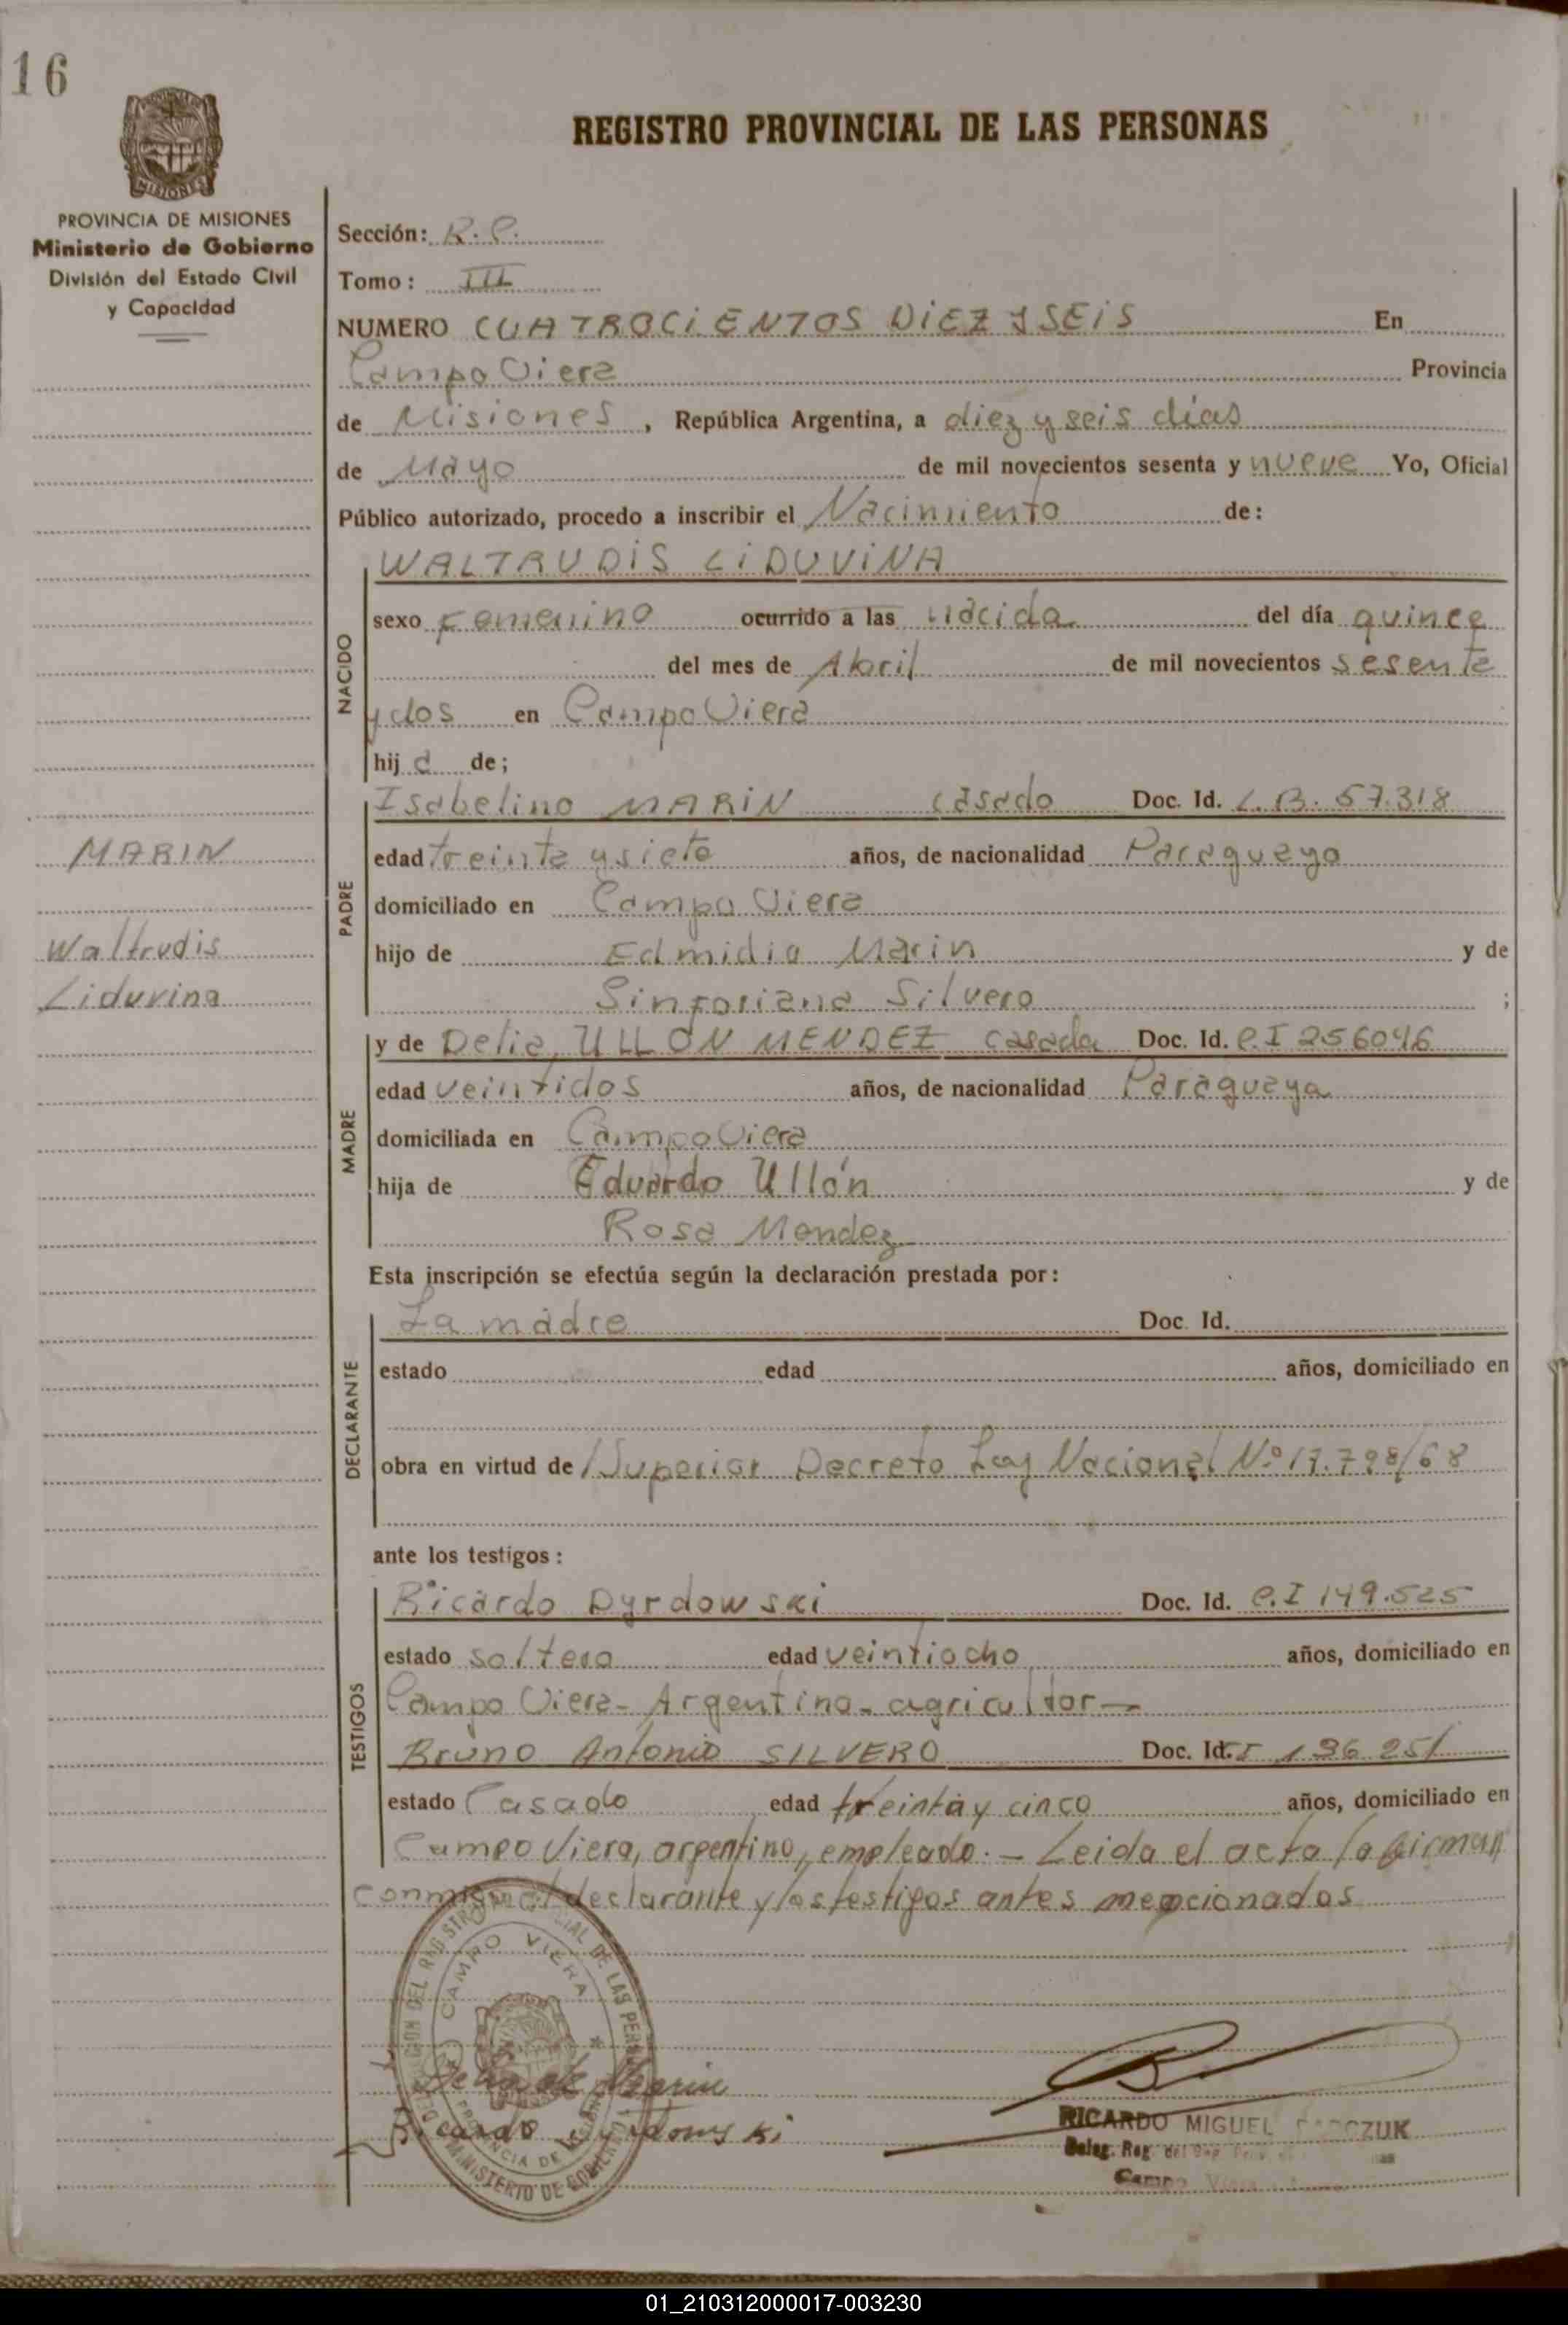 16
MISIONES
PROVINCIA DE MISIONES
Ministerio de Gobierno
División del Estado Civil
y Capacidad
REGISTRO PROVINCIAL DE LAS PERSONAS
Sección: R. C.
Tomo: III
NUMERO CUATROCIENTOS DIEZ y SEIS En
Campo Viera Provincia
de Misiones, República Argentina, a diez y seis días
de Mayo de mil novecientos sesenta y nueve Yo, Oficial
Público autorizado, procedo a inscribir el Nacimiento de:
NACIDO
WALTRUDIS LIDUVINA
sexo Femenino ocurrido a las nacida del día quince
del mes de Abril de mil novecientos sesenta
y dos en Campo Viera
hij a de;
PADRE
Isabelino MARIN casado Doc. Id. L.B. 57.318
MARIN
edad treinta y siete años, de nacionalidad Paraguayo
domiciliado en Campo Viera
Waltrudis
hijo de Edmidio Marin y de
Liduvina
Sinforiana Silvero ;
MADRE
y de Delia ULLON MENDEZ casada Doc. Id. C.I 256046
edad veintidos años, de nacionalidad Paraguaya
domiciliada en Campo Viera
hija de Eduardo Ullón y de
Rosa Mendez
Esta inscripción se efectúa según la declaración prestada por:
DECLARANTE
La madre Doc. Id.
estado edad años, domiciliado en
obra en virtud de /Superior Decreto Ley Nacional Nº 17.798/68
ante los testigos:
TESTIGOS
Ricardo Dyrdowski Doc. Id. C.I 149.525
estado soltero edad veintiocho años, domiciliado en
Campo Viera- Argentino- agricultor—
Bruno Antonio SILVERO Doc. Id. 196 251
estado Casado edad treinta y cinco años, domiciliado en
Campo Viera, argentino, empleado.- Leida el acta la firman
conmigo el declarante y los testigos antes mencionados
CAMPO VIERA
PROVINCIA DE MISIONES
MINISTERIO DE GOBIERNO
Delia de Marin
Ricardo Dyrdowski
RICARDO MIGUEL
Deleg. Reg. del
Campo Viera
01_210312000017-003230